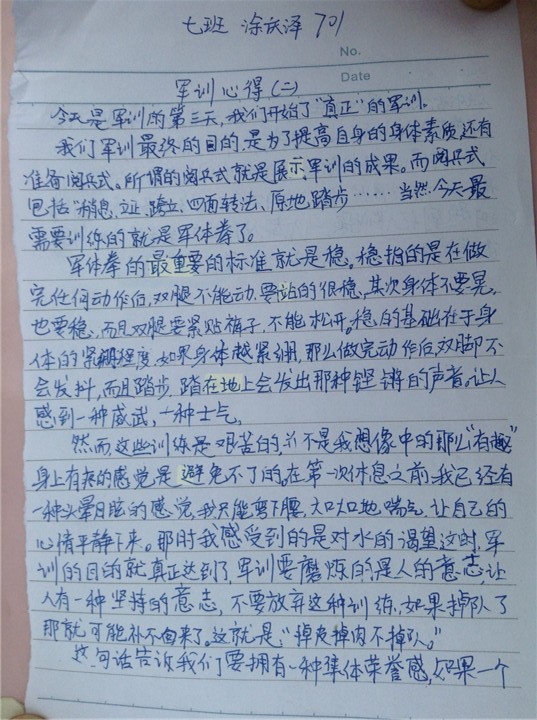 七班 涂庆泽 701
No.
Date
军训心得(二)
今天是军训的第三天,我们开始了"真正"的军训。
我们军训最终的目的,是为了提高自身的身体素质还有
准备阅兵式。所谓的阅兵式就是展示军训的成果。而阅兵式
包括"稍息、立正、跨立、四面转法、原地踏步……当然,今天最
需要训练的就是军体拳了。
军体拳的最重要的标准就是稳。稳指的是在做
完任何动作后,双腿不能动,要站的很稳,其次身体不要晃,
也要稳,而且双腿要紧贴裤子,不能松开。稳的基础在于身
体的紧绷程度,如果身体越紧绷,那么做完动作后,双脚不
会发抖,而且踏步,踏在地上会发出那种铿锵的声音。让人
感到一种威武,一种士气。
然而这些训练是艰苦的,并不是我想像中的那么"有趣"
身上有疼的感觉是避免不了的,在第一次休息之前,我已经有
一种头晕目眩的感觉,我只能弯下腰,大口大口地喘气,让自己的
心情平静下来。那时我感受到的是对水的渴望这时,军
训的目的就真正达到了,军训要磨炼的是人的意志,让
人有一种坚持的意志,不要放弃这种训练,如果掉队了
那就可能补不回来了。这就是:"掉皮掉肉不掉队。"
这句话告诉我们要拥有一种集体荣誉感,如果一个